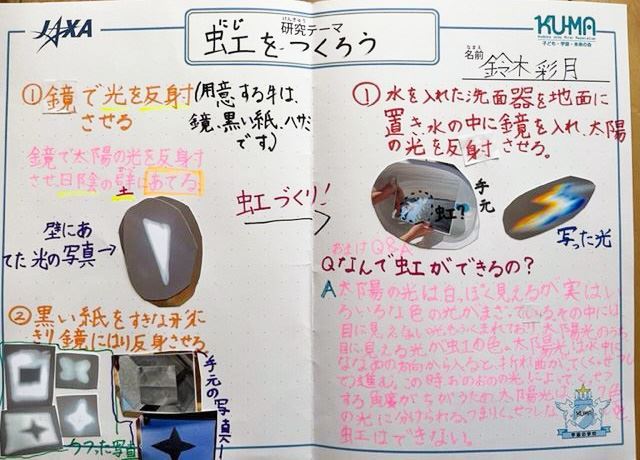 JAXA
けんきゅう
研究テーマ
にじ
虹をつくろう
KU-MA
子ども・宇宙・未来の会
なまえ
名前 鈴木彩月
①鏡で光を反射
させる
(用意する牛は、
鏡、黒い紙、ハサミ
です。)
鏡で太陽の光を反射
させ、日陰の壁にあてる
壁にあ
てた光の写真→
②黒い紙をすきな形に
きり鏡にはり反射させる
手元の写真
うつった写真
虹づくり!
①水を入れた洗面器を地面に
置き、水の中に鏡を入れ、太陽
の光を反射させる。
虹?
手元
写った光
おまけQ&A
Qなんで虹ができるの?
A太陽の光は白っぽく見えるが実はい
ろいろな色の光がまざっている。その中には
目に見えない光もふくまれており太陽光のうち
目に見える光が虹の色。太陽光は水中に
ななめの方向から入ると、折れ曲がって
進む。この時
する角度がちがうため、太陽光は
の光に分けられる。つまり、
虹はできない。
KU-MA
宇宙の学校